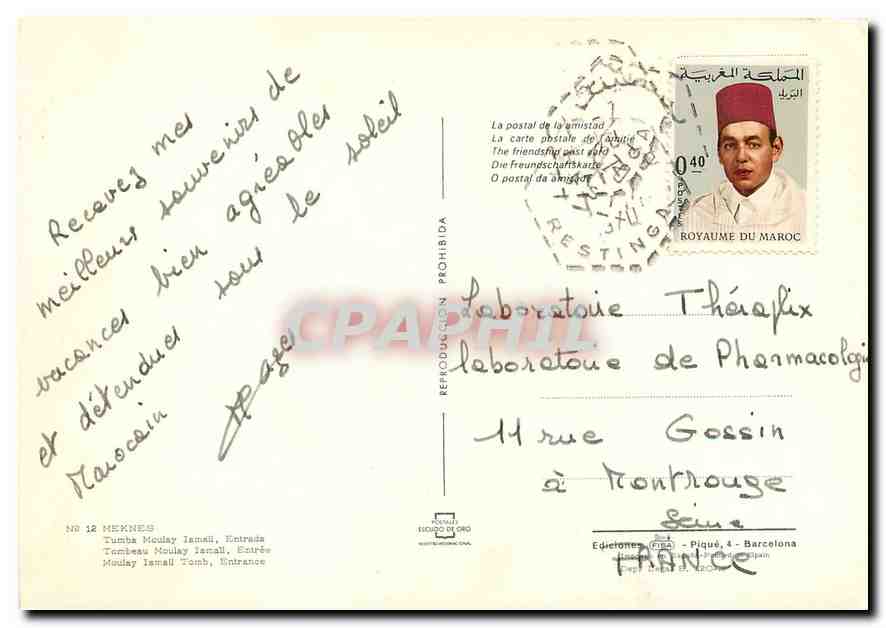 Recevez mes
meilleurs souvenirs de
vacances bien agréables
et détendues sous le soleil
Marocain
Nº 12 MEKNES
Tumba Moulay Ismaïl, Entrada
Tombeau Moulay Ismaïl, Entrée
Moulay Ismaïl Tomb, Entrance
POSTALES
ESCUDO DE ORO
REGISTRO INTERNACIONAL
REPRODUCCION PROHIBIDA
CPAPHIL
La postal de la amistad
La carte postale de l'amitié
The friendship post card
Die Freundschaftskarte
O postal da amisade
RESTINGA
المملكة المغربية
البريد
0.40
POSTES
ROYAUME DU MAROC
Laboratoire Théraplix
laboratoire de Pharmacologie
11 rue Gossin
à Montrouge
Seine
FRANCE
Ediciones FISA - Piqué, 4 - Barcelona